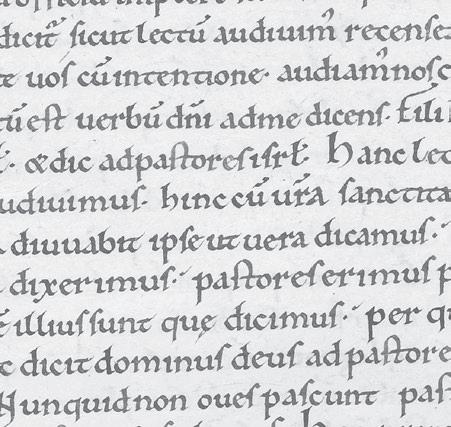 dicit̃ sicut lectũ audiuim̃ recense
te uos cũ intentione· audiam̃ nos c
tũ est uerbũ dñi ad me dicens· fili
ł· & dic ad pastores isrł· hanc lec
udiuimus· hinc cũ ur̃a sanctita
diuuabit ipse ut uera dicamus·
dixerimus· pastores erimus p
illius sunt que dicimus· per q
c dicit dominus deus ad pastore
Nunquid non oues pascunt pas